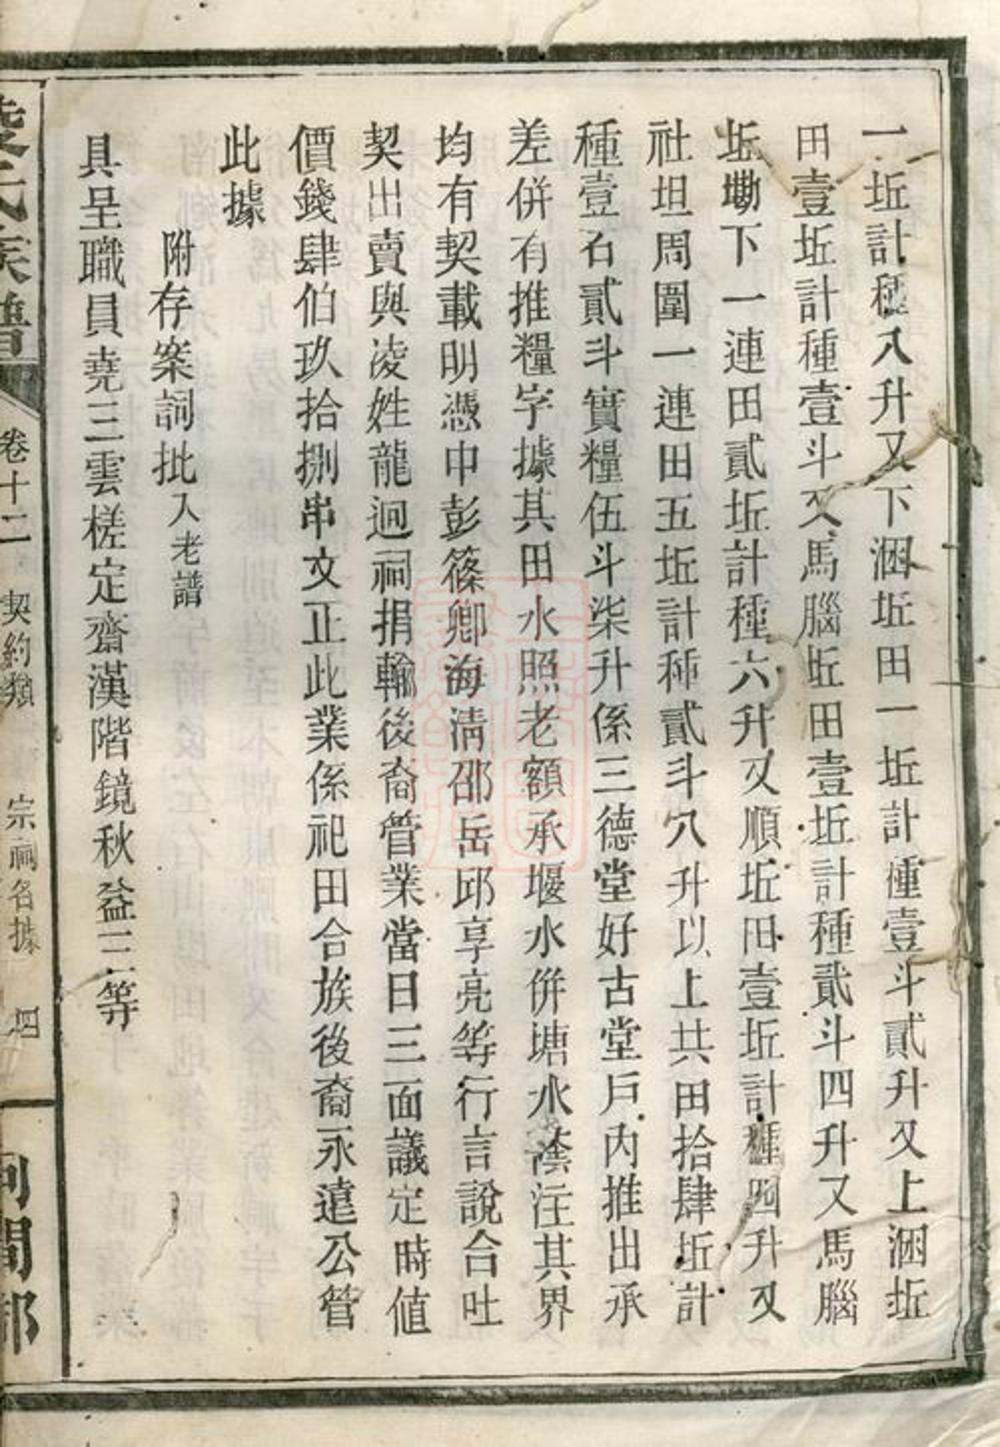 一坵計種八升又下涃坵田一坵計種壹斗貳升又上涃坵
田壹坵計種壹斗又馬腦坵田壹坵計種貳斗四升又馬腦
坵墈下一連田貳坵計種六升又順坵田壹坵計種四升又
社坦周圍一連田五坵計種貳斗六升以上共田拾肆坵計
種壹石貳斗實糧伍斗柒升係三德堂好古堂戶內推出承
差併有推糧字據其田水照老額承堰水併塘水蔭注其界
均有契載明憑中彭篠卿海清邵岳邱享亮等行言說合吐
契出賣與凌姓龍迴祠捐輸後裔管業當日三面議定時值
價錢肆伯玖拾捌串文正此業係祀田合族後裔永遠公管
此據
附存案詞批入老譜
具呈職員堯三雲槎定齋漢階鏡秋益三等
凌氏族譜
卷十二
契約類
宗祠名據
四
河間郡